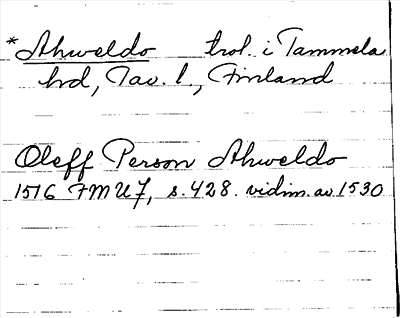 *Ahweldo trol. i Tammela
hd, Tav. l., Finland
Oleff Person Ahweldo
1516 FMU 7, s. 428. vidim. av 1530